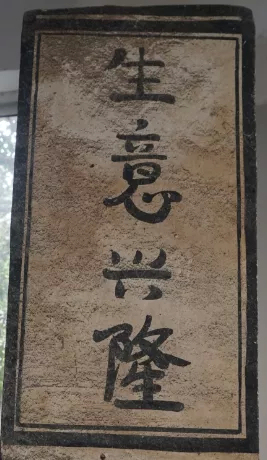 生意兴隆